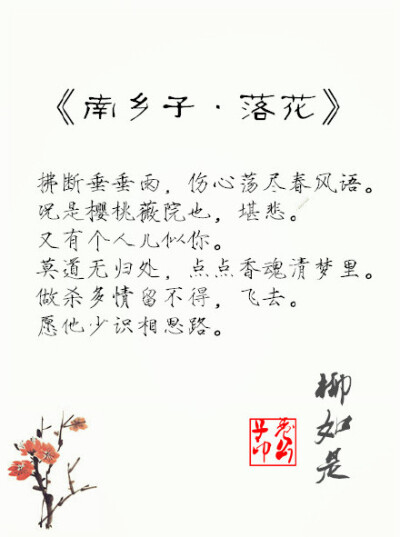 《南乡子·落花》
拂断垂垂雨，伤心荡尽春风语。
况是樱桃薇院也，堪悲。
又有个人儿似你。
莫道无归处，点点香魂清梦里。
做杀多情留不得，飞去。
愿他少识相思路。
柳如是